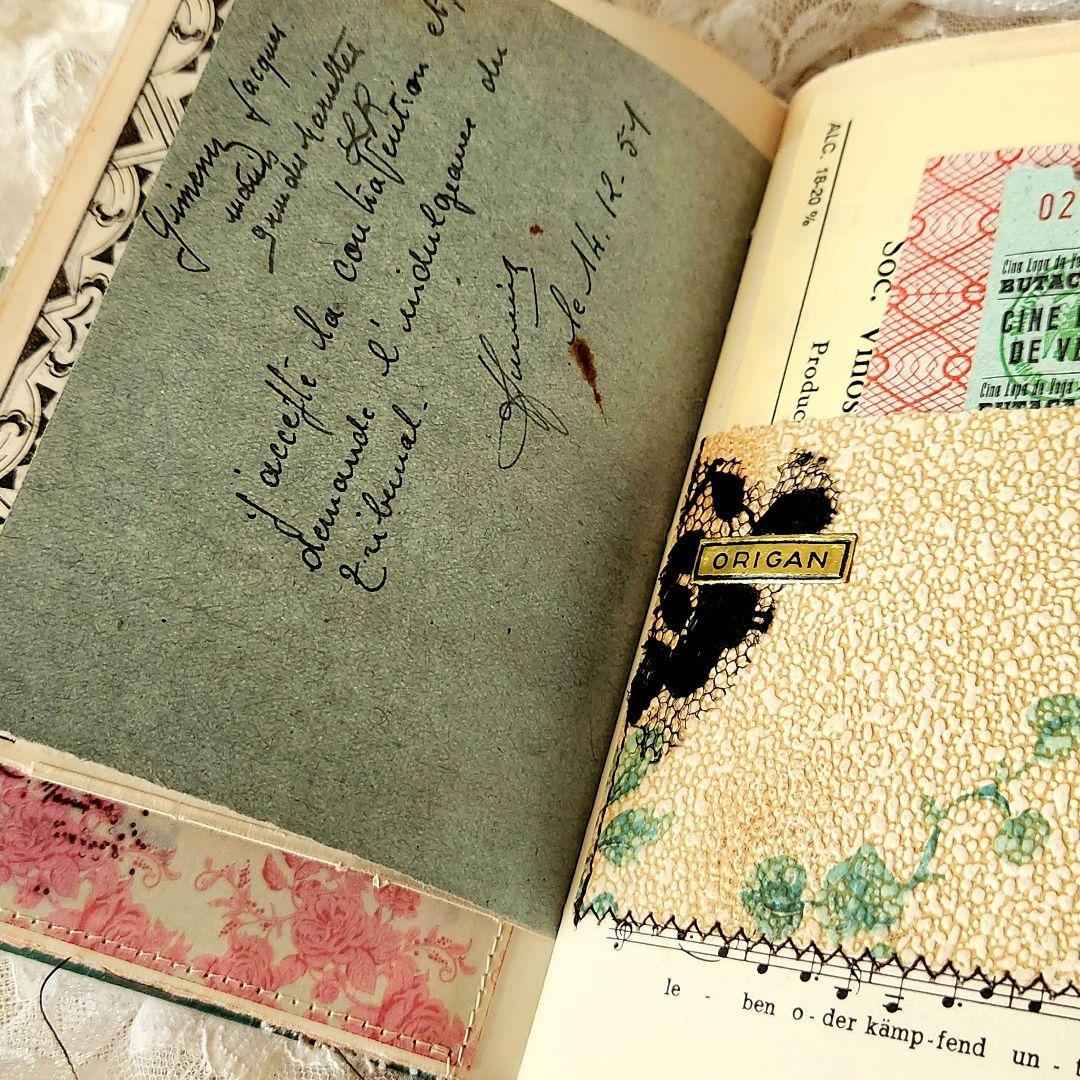 Jacques
J'accepte la contravention et,
demande l'indulgeance du
tribunal.
le 14.12.51
ALC. 18-20 %
Soc. Vinos
Produc
02
Cine Lopo de Ve
BUTAC
CINE
DE VE
Cine Lopo de Vega
BUTACA
ORIGAN
le - ben o - der kämp - fend un - t